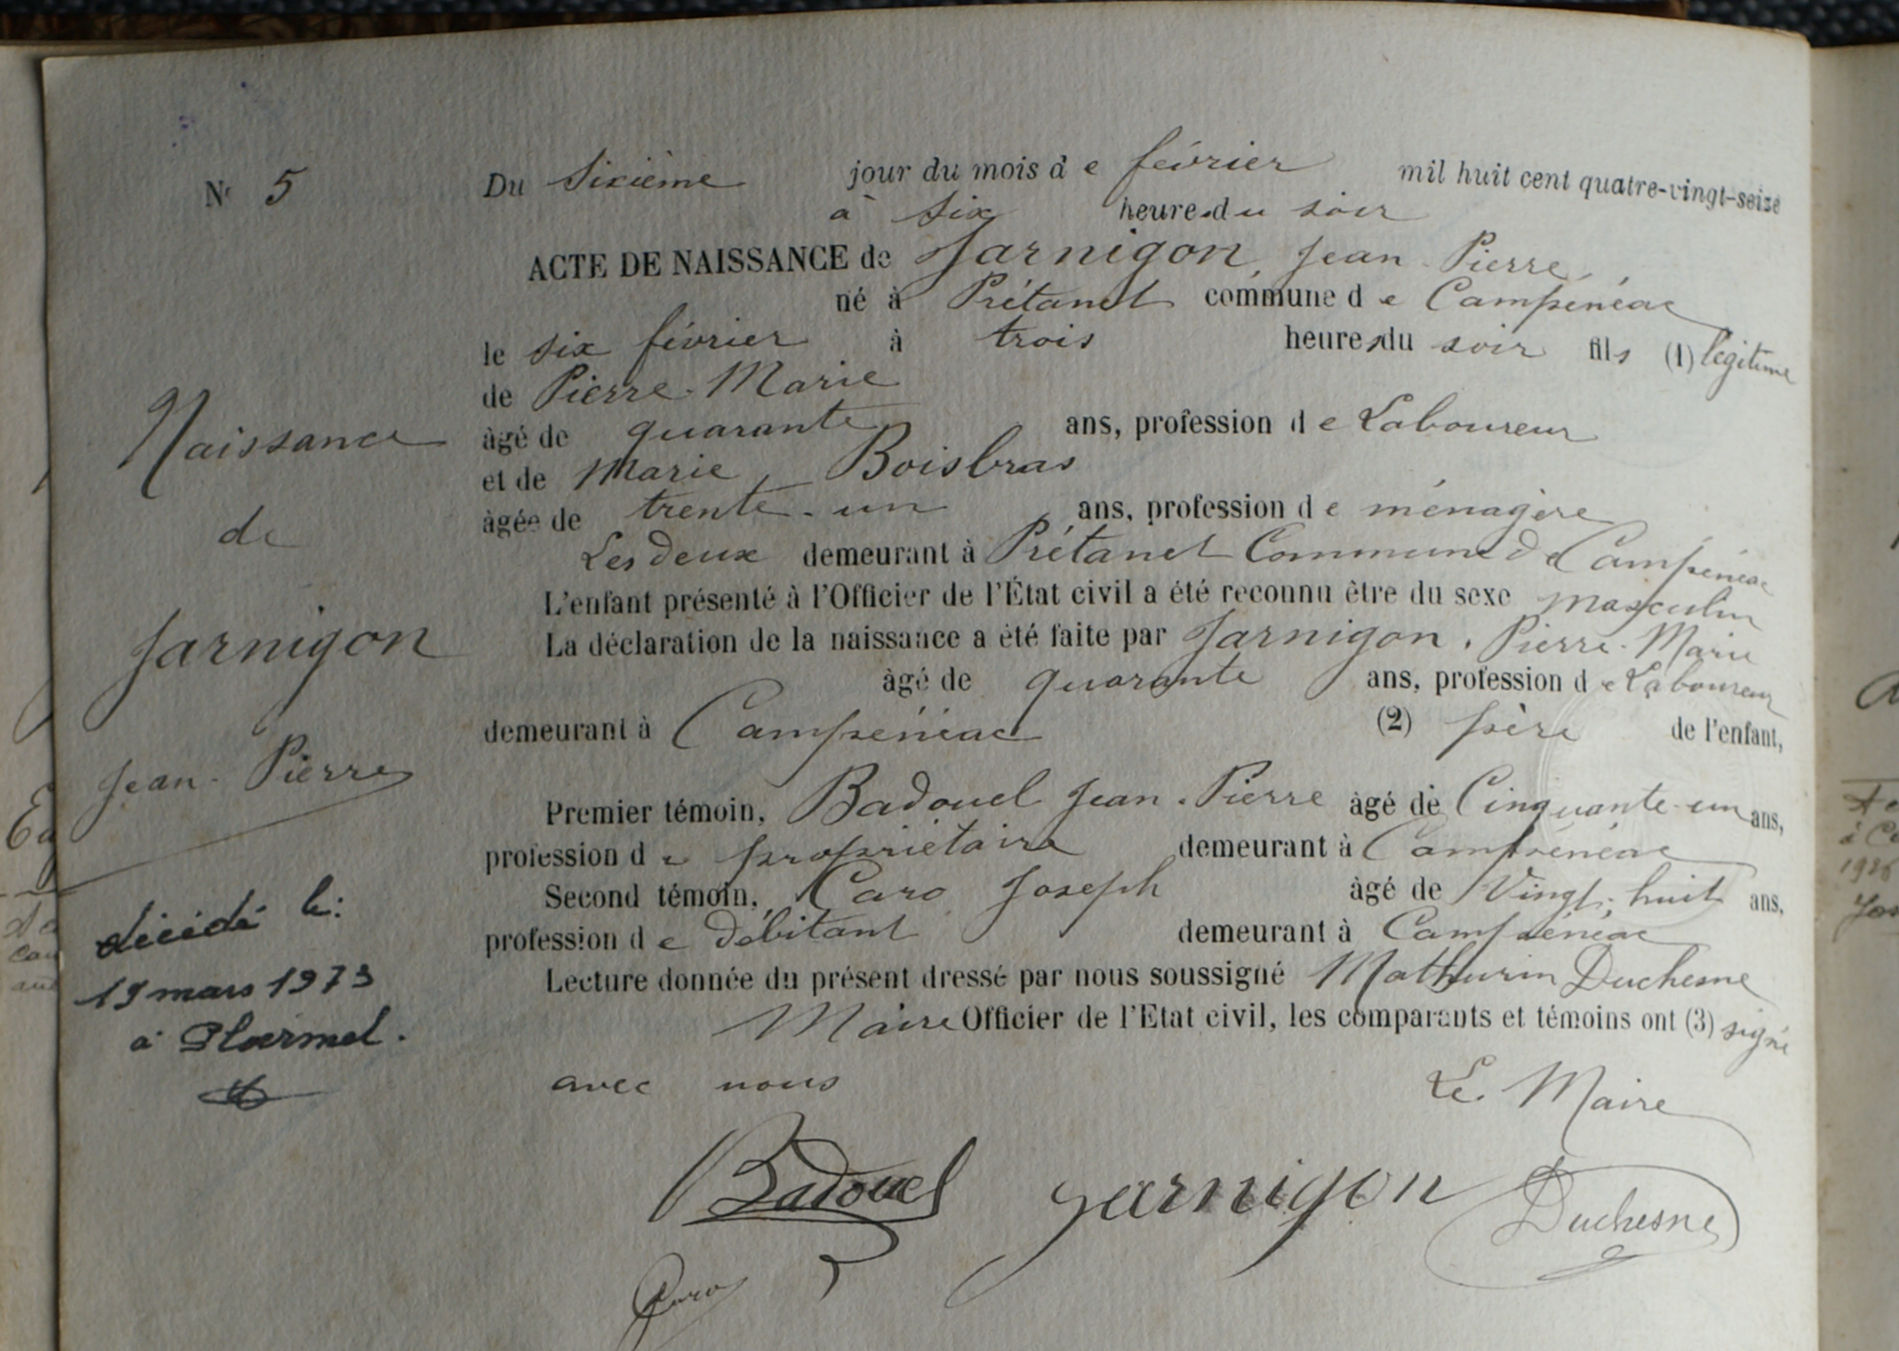 N° 5
Du sixième jour du mois de février mil huit cent quatre-vingt-seize
à six heures du soir
ACTE DE NAISSANCE de Jarnigon, Jean-Pierre,
né à Prétanet commune de Campénéac
le six février à trois heures du soir fils (1) légitime
de Pierre-Marie
âgé de quarante ans, profession de Laboureur
et de Marie, Boisbras
âgée de trente-un ans, profession de ménagère
Les deux demeurant à Prétanet Commune de Campénéac
L'enfant présenté à l'Officier de l'État civil a été reconnu être du sexe masculin
La déclaration de la naissance a été faite par Jarnigon, Pierre-Marie
âgé de quarante ans, profession de Laboureur
demeurant à Campénéac (2) père de l'enfant,
Premier témoin, Badouel Jean-Pierre âgé de Cinquante-un ans,
profession de propriétaire demeurant à Campénéac
Second témoin, Caro Joseph âgé de Vingt-huit ans,
profession de débitant demeurant à Campénéac
Lecture donnée du présent dressé par nous soussigné Mathurin Duchesne
Maire Officier de l'Etat civil, les comparants et témoins ont (3) signé
avec nous
Le Maire
Badouel Jarnigon Duchesne
Caro
Naissance
de
Jarnigon
Jean-Pierre
décédé le:
19 mars 1973
à Ploërmel.